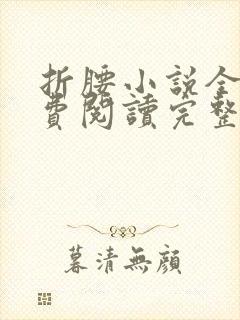 折腰小説全
費閱讀完整
暮清無顏